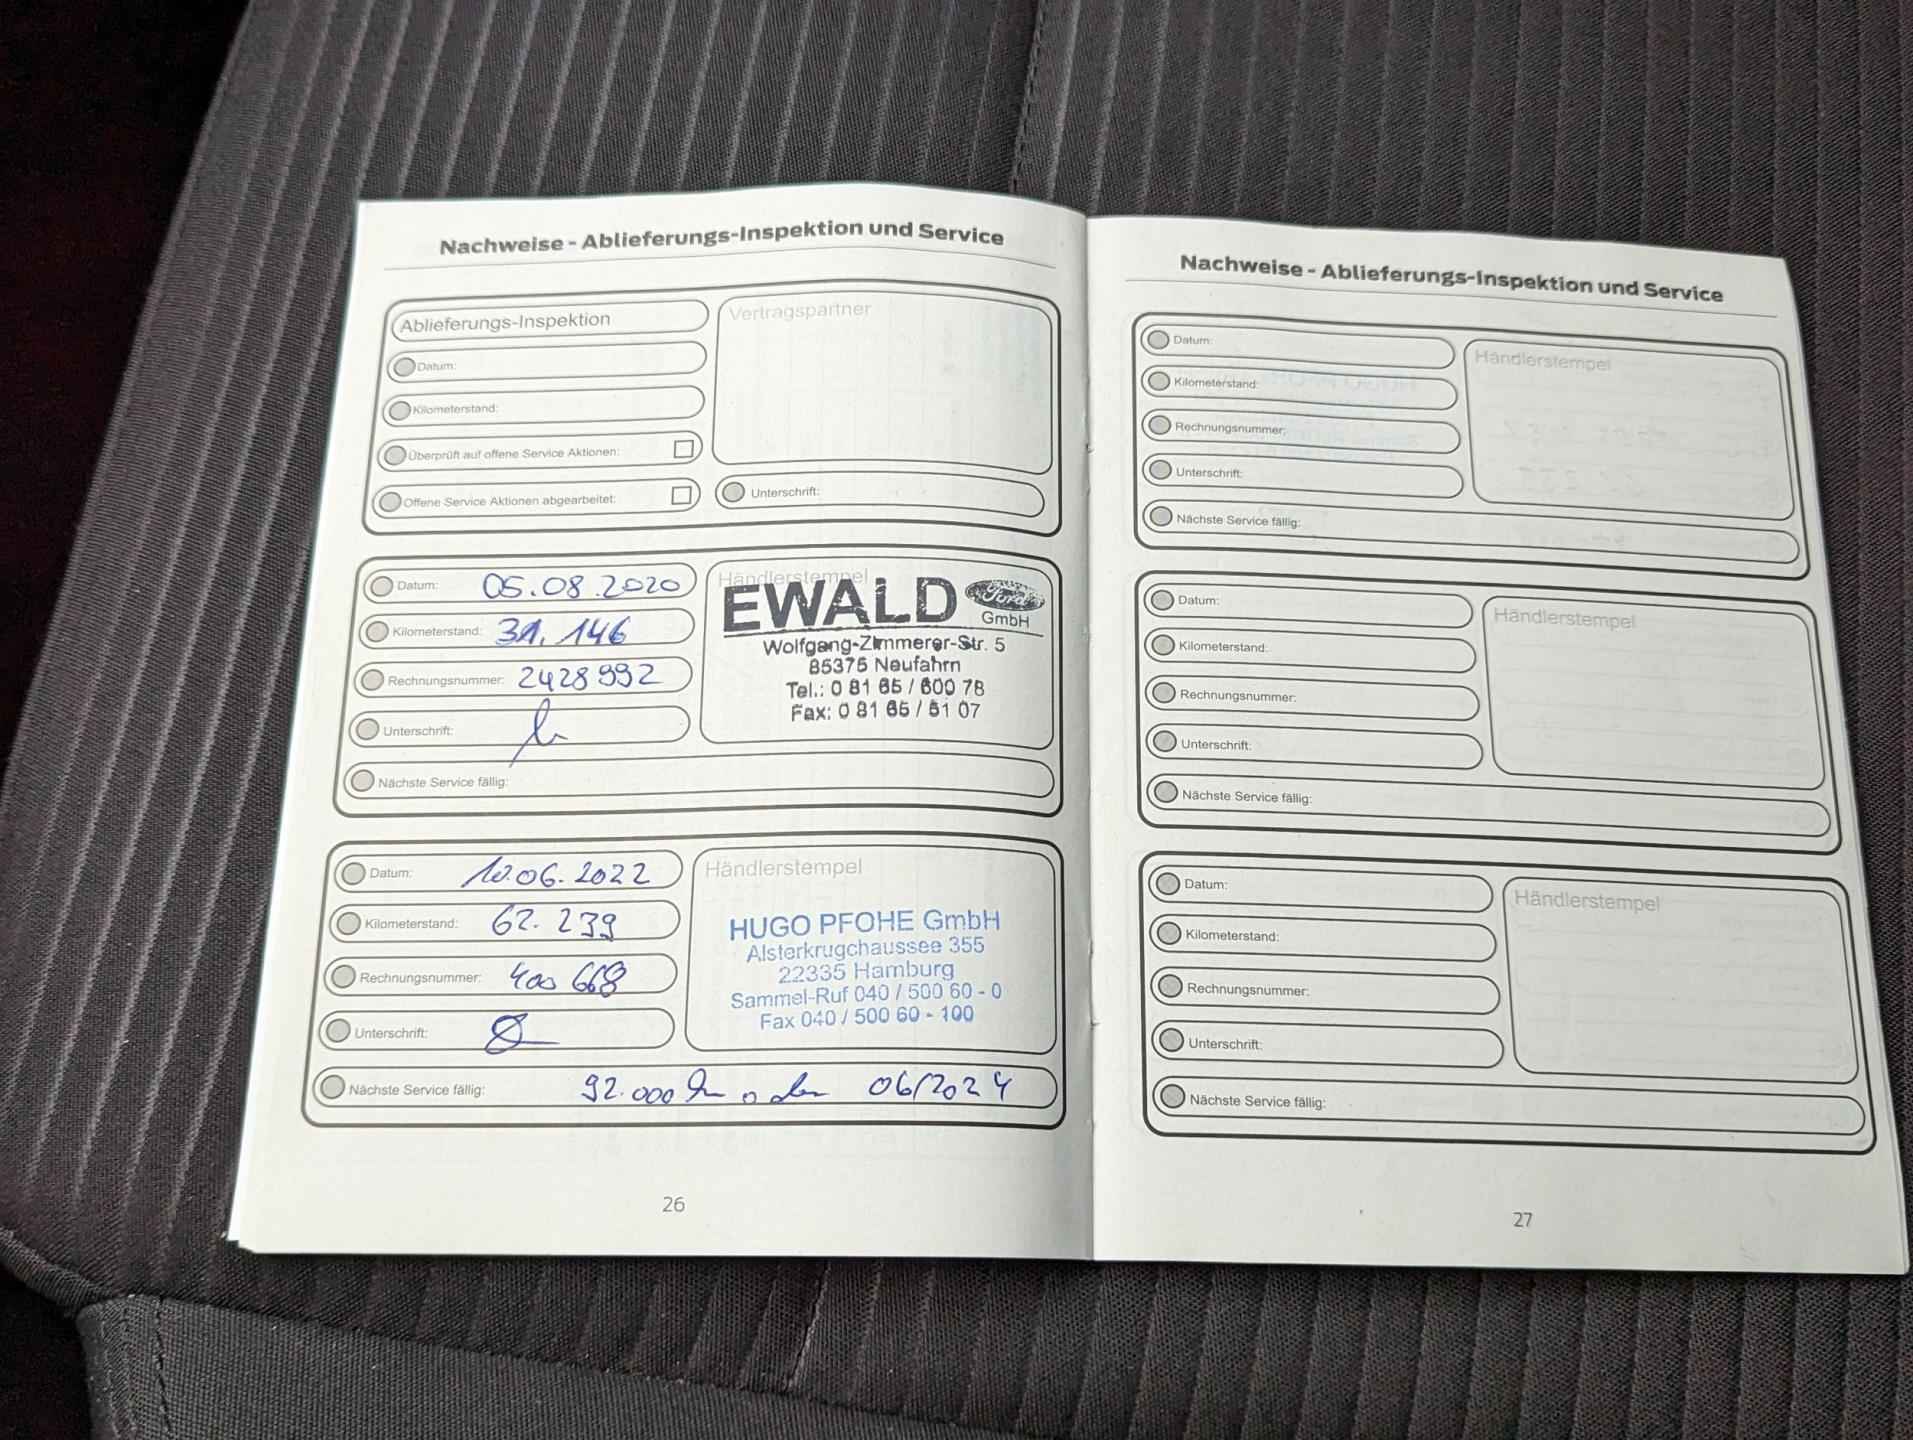 Nachweise - Ablieferungs-Inspektion und Service
Ablieferungs-Inspektion
Datum:
Kilometerstand:
Überprüft auf offene Service Aktionen:
Offene Service Aktionen abgearbeitet:
Vertragspartner
Unterschrift:
Datum: 05.08.2020
Kilometerstand: 31.146
Rechnungsnummer: 2428992
Unterschrift:
Nächste Service fällig:
Händlerstempel
EWALD Ford
GmbH
Wolfgang-Zimmerer-Str. 5
85375 Neufahrn
Tel.: 0 81 65 / 600 78
Fax: 0 81 65 / 51 07
Datum: 10.06.2022
Kilometerstand: 62.239
Rechnungsnummer: 400 668
Unterschrift:
Händlerstempel
HUGO PFOHE GmbH
Alsterkrugchaussee 355
22335 Hamburg
Sammel-Ruf 040 / 500 60 - 0
Fax 040 / 500 60 - 100
Nächste Service fällig: 92.000 km oder 06/2024
26
Nachweise - Ablieferungs-Inspektion und Service
Datum:
Kilometerstand:
Rechnungsnummer:
Unterschrift:
Nächste Service fällig:
Händlerstempel
Datum:
Kilometerstand:
Rechnungsnummer:
Unterschrift:
Nächste Service fällig:
Händlerstempel
Datum:
Kilometerstand:
Rechnungsnummer:
Unterschrift:
Nächste Service fällig:
Händlerstempel
27